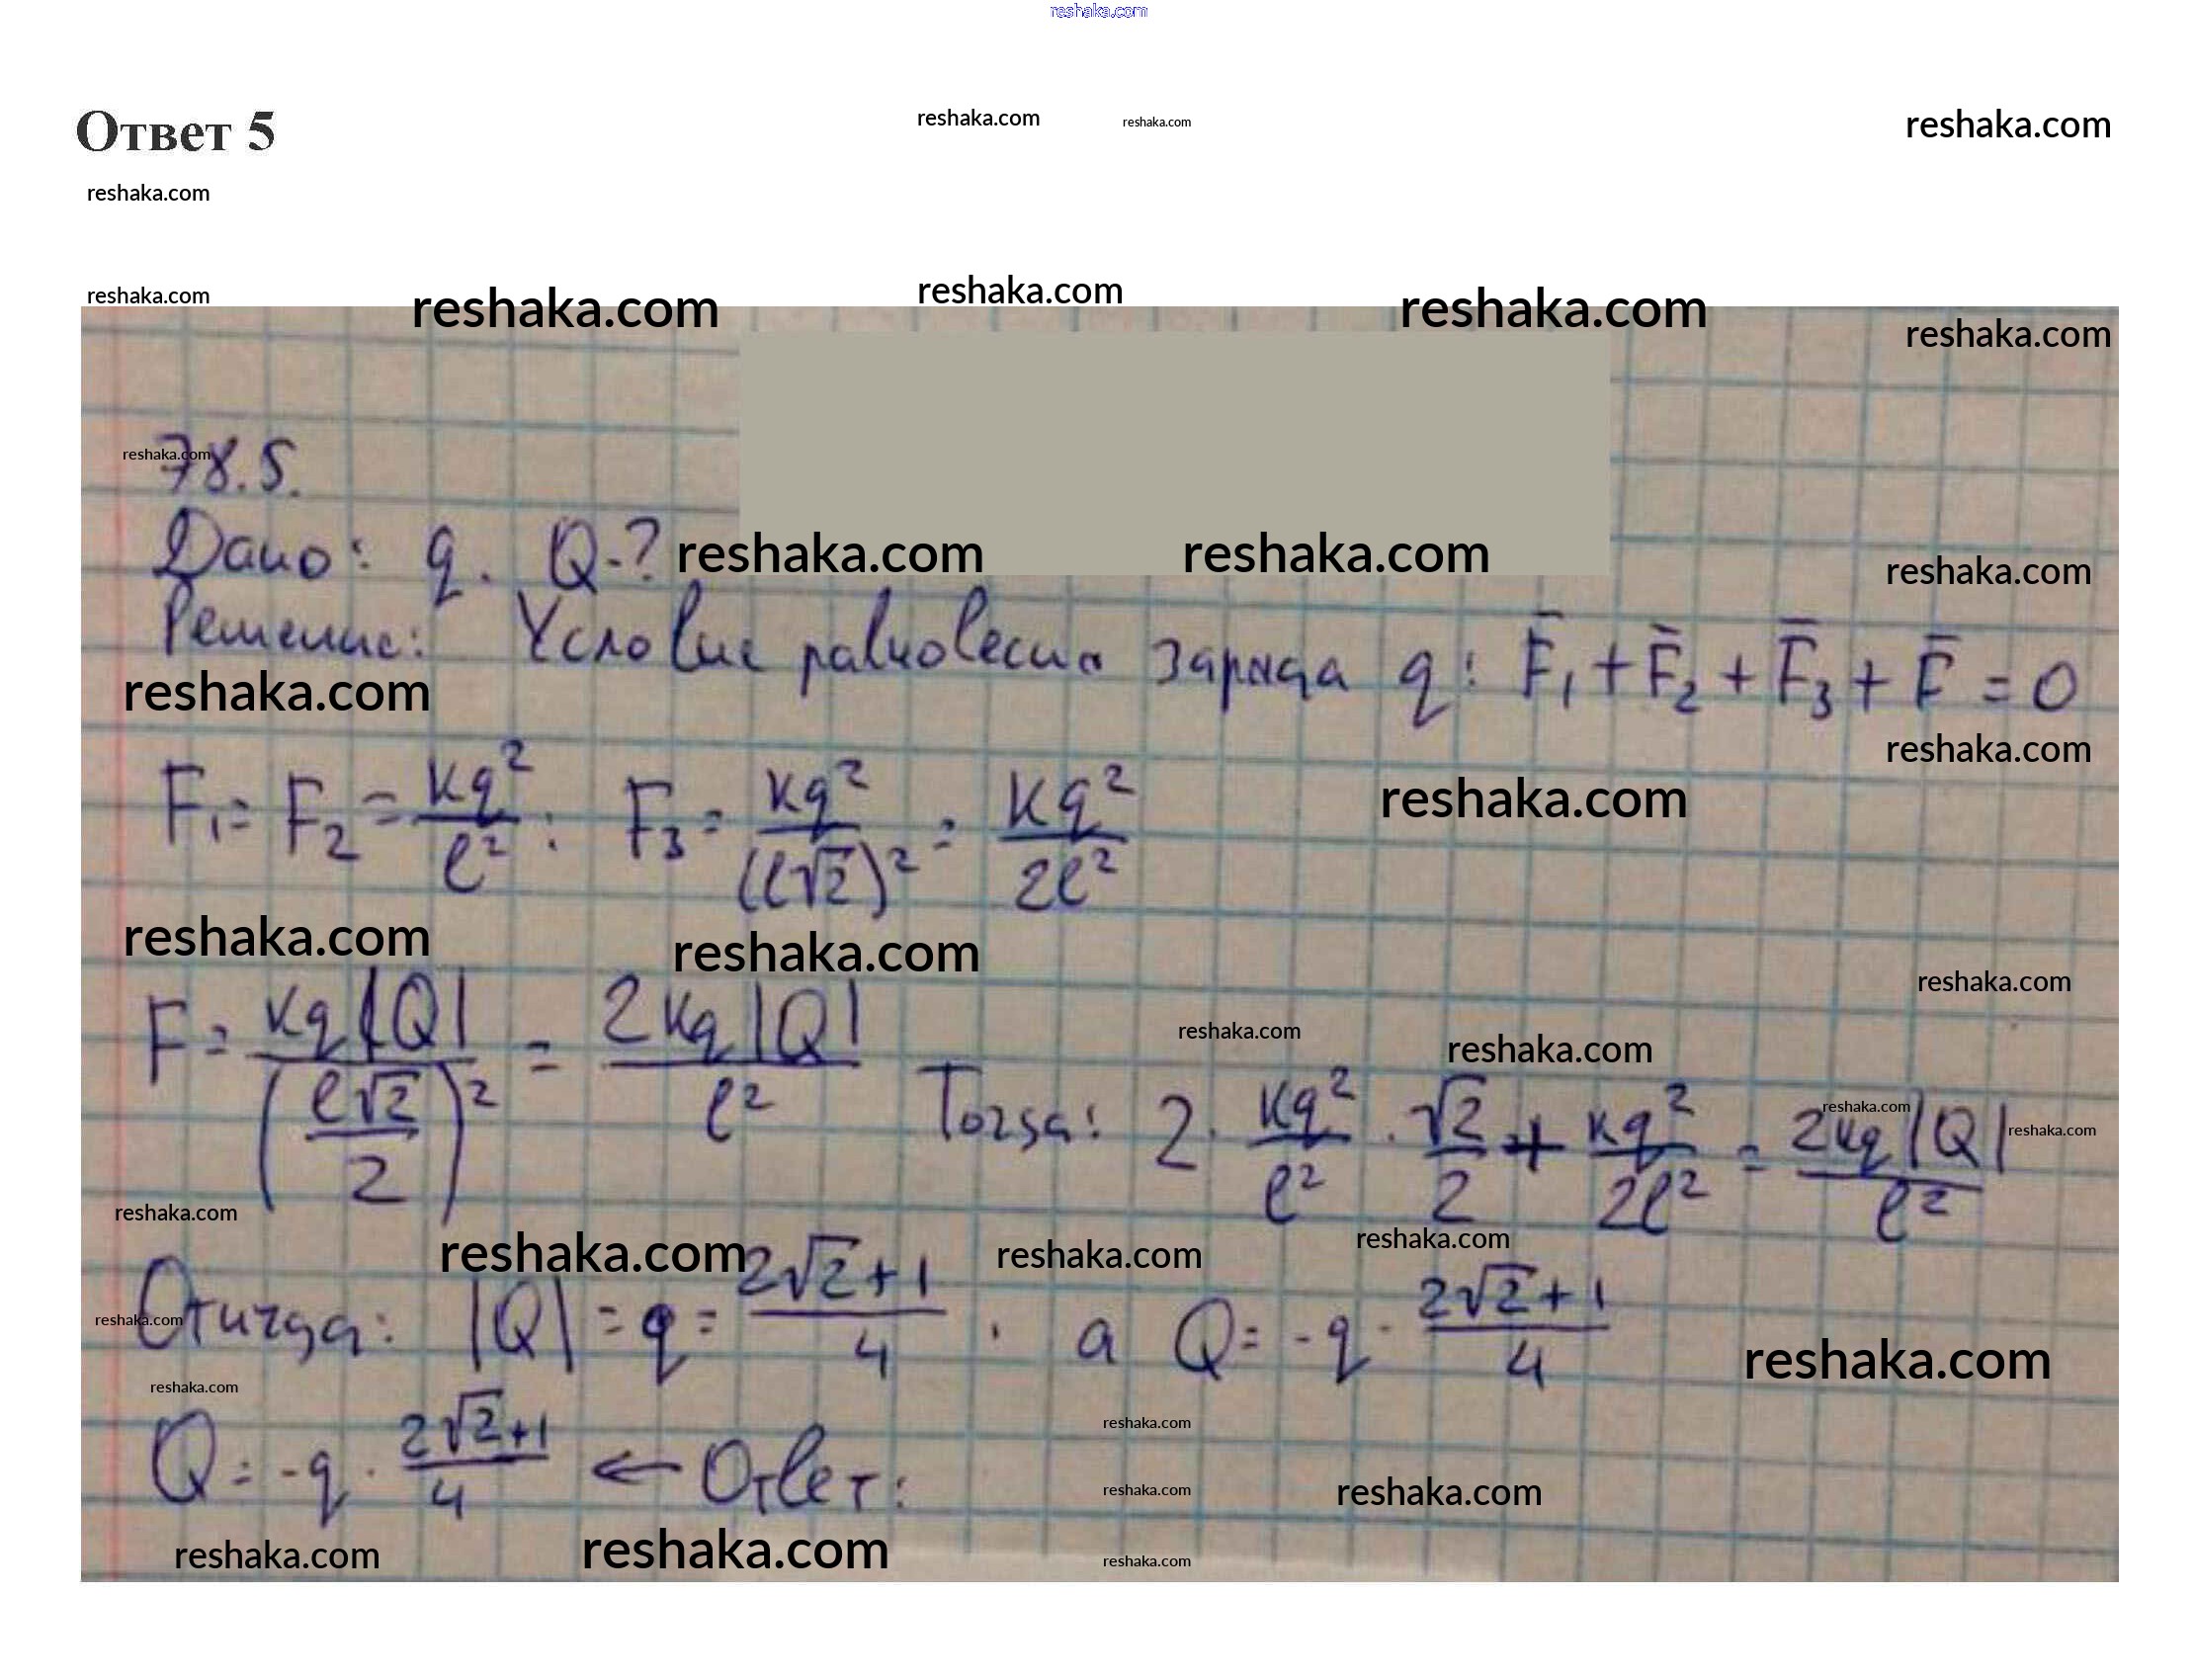 reshaka.com
Ответ 5
reshaka.com reshaka.com reshaka.com
reshaka.com
reshaka.com reshaka.com reshaka.com reshaka.com
reshaka.com
78.5. reshaka.com
Дано: q. Q-? reshaka.com reshaka.com reshaka.com
Решение: Условие равновесия заряда q: F̄₁ + F̄₂ + F̄₃ + F̄ = 0
reshaka.com
reshaka.com
reshaka.com
F₁ = F₂ = kq²/l² ; F₃ = kq²/(l√2)² = kq²/2l²
reshaka.com reshaka.com
reshaka.com
reshaka.com reshaka.com
F = kq|Q|/(l√2/2)² = 2kq|Q|/l² Тогда: 2 · kq²/l² · √2/2 + kq²/2l² = 2kq|Q|/l²
reshaka.com reshaka.com
reshaka.com
reshaka.com reshaka.com reshaka.com
Откуда: |Q| = q = 2√2+1/4 , а Q = -q · 2√2+1/4
reshaka.com
reshaka.com
reshaka.com
reshaka.com
Q = -q · 2√2+1/4 ← Ответ:
reshaka.com reshaka.com
reshaka.com reshaka.com reshaka.com